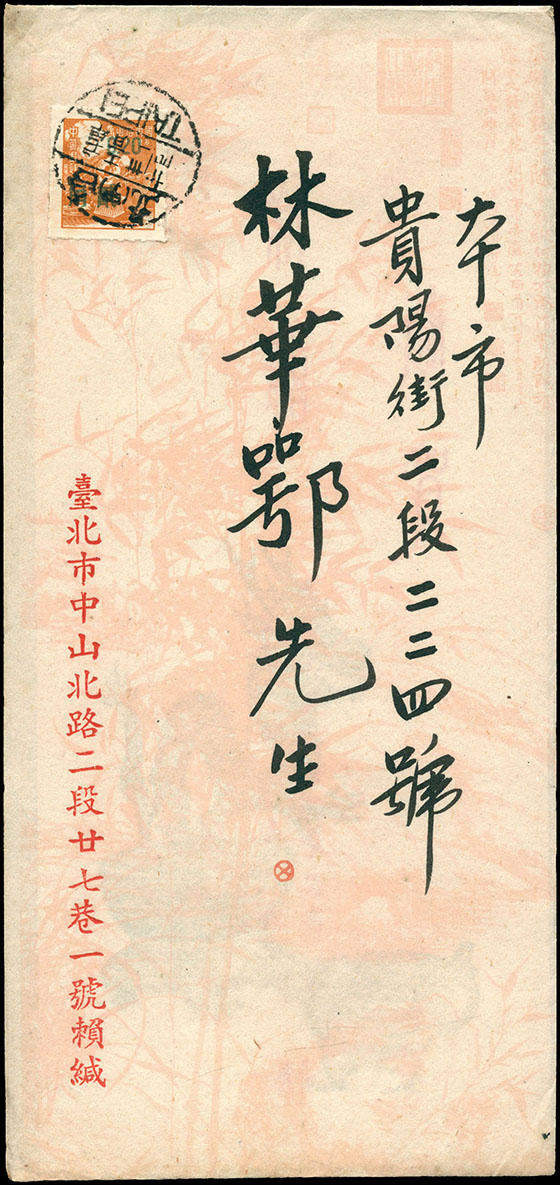 本市
貴陽街二段二二四號
林華鄂先生
臺北市中山北路二段廿七巷一號賴緘
TAIPEI